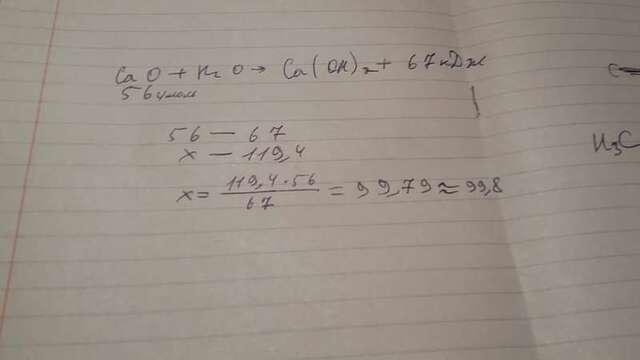 CaO + H₂O → Ca(OH)₂ + 67 кДж
56 г/моль
56 — 67
x — 119,4
x = 119,4 · 56 / 67 = 99,79 ≈ 99,8
C
H₃C